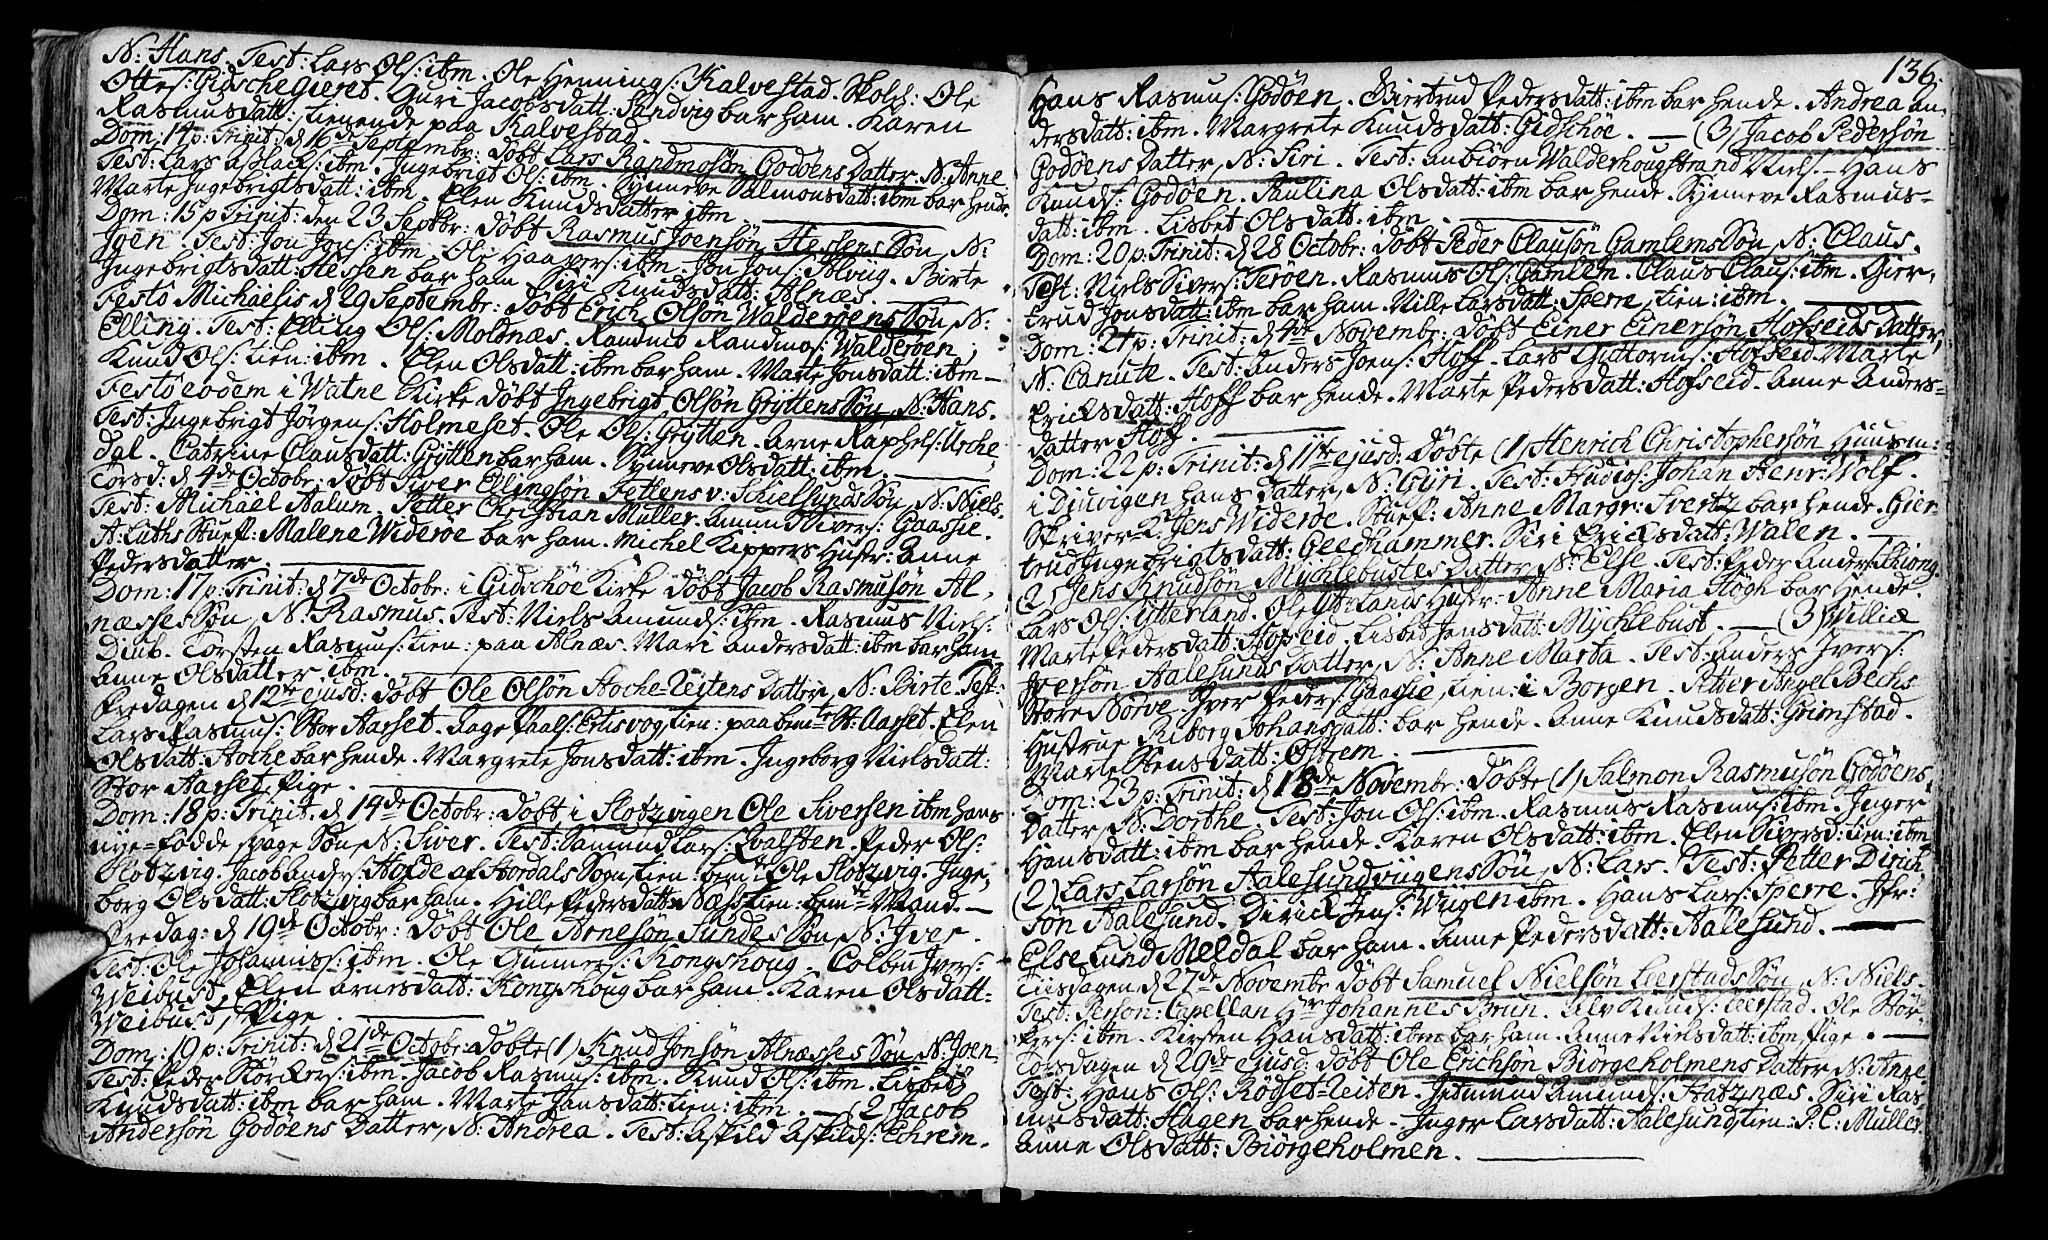 N: Hans. Test: Lars Ols: ibm. Ole Hennings: Kalvestad. Skoleh: Ole
Ottes: Gidsche Gieret. Guri Jacobsdatt: Sandvig bar ham. Karen
Rasmusdatt: tienende paa Kalvestad.
Dom: 14 p: Trinit: d 16de Septembr: döbt Lars Randmosön Godöens Datter N: Anne
Test: Lars Aslacks: ibm. Ingebrigt Ols: ibm. Synneve Salmonsdatt: ibm bar hende.
Marte Ingebrigtsdatt: ibm. Elen Knudsdatter ibm.
Dom: 15 p Trinit: den 23 Septbr: döbt Rasmus Joensön Hessens Sön, N:
Joen. Test: Jon Jons: ibm. Ole Haavers: ibm. Jon Jons: Birte
Ingebrigtsdatt: Hessen bar ham. Siri Knudsdatt: Alnæs.
Festo Michaëlis d 29 Septembr: döbt Erich Olsön Walderöens Sön, N:
Elling. Test: Elling Ols: Molnæs. Randmo Randmos: Walderöen;
Knud Ols: tien: ibm. Elen Olsdatt: ibm bar ham. Marte Jonsdatt: ibm —
Festo eodem i Watne Kirke döbt Ingebrigt Olsön Gryttens Sön, N: Hans.
Test: Ingebrigt Jörgens: Holmeset. Ole Ols: Grytten. Arne Raphels: Urche,
dal. Catrine Clausdatt: Grytten bar ham. Synneve Olsdatt: ibm.
Torsd: d 4de Octobr: döbt Siver Ellingsön Fettens v: Schielsunds Sön, N: Niels.
Test: Michaël Aalum. Petter Christian Muller. Amund Sivers: Gaasеie.
A: Luths Stuef: Malene Wideröe bar ham. Michel Kippers Hustr: Anne
Pedersdatter.
Dom: 17 p: Trinit: d 7de Octobr: i Gidschöe Kirke döbt Jacob Rasmusön Al,
næsses Sön, N: Rasmus. Test: Niels Amunds: ibm. Rasmus Niels:
Diub. Torsten Rasmus: tien: paa Alnæs. Mari Andersdatt: ibm bar ham
Anne Olsdatter ibm.
Fredagen d 12te ejusd: döbt Ole Olsön Hoche-Leitens Datter, N: Birte. Test:
Lars Rasmus: Stor Aarset. Aage Paals: tien: paa bemte St: Aarset. Elen
Olsdatt: Hoche bar hende. Margrete Jonsdatt: ibm. Ingeborg Nielsdatt:
Stor Aarset, Pige.
Dom: 18 p: Trinit: d 14de Octobr: döbt i Slotzvigen Ole Siversen ibm hans
nye-födde svage Sön, N: Siver. Test: Samund Lars: Qvalsten. Peder Ols:
Slotzvig. Jacob Anders: Hofde af Stordals Sogn, tien: bemte Ole Slotzvig. Inge,
borg Olsdatt: Slotzvig bar ham. Hille Pedersdatt: Næss tien: bemte Mand. —
Fredag: d 19de Octobr: döbt Ole Arnesön Sundes Sön, N: Iver.
Test: Ole Johanniss: ibm. Ole Gunners: Kongshoug. Colben Ivers:
Weibust, Elen Arnesdatt: Kongshoug bar ham. Karen Olsdatt:
Weibust, Pige.
Dom: 19 p: Trinit: d 21de Octobr: döbte (1) Knud Jonsön Alnæsses Sön N: Joen.
Test: Peder Störckers: ibm. Jacob Rasmus: ibm. Knud Ols: ibm. Lisbeth
Knudsdatt: ibm bar ham. Marte Hansdatt: tien: ibm. — (2) Jacob
Andersön Godöens Datter, N: Andrea. Test: Askild Askilds: Ehrem.
136.
Hans Rasmus: Godöen. Giertrud Pedersdatt: ibm bar hende. Andrea An,
dersdatt: ibm. Margrete Knudsdatt: Gidschöe. — (3) Jacob Pedersön
Godöens Datter, N: Siri. Test: Anbiörn Walderhougstrand Niels. — Hans
Knuds: Godöen. Paulina Olsdatt: ibm bar hende. Synneve Rasmus-
datt: ibm. Lisbet Olsdatt: ibm.
Dom: 20 p: Trinit: d 28 Octobr: döbt Peder Clausön Gamlems Sön, N: Claus.
Test: Niels Sivers: Teröen. Rasmus Ols: Gamlem. Claus Claus: ibm. Gier,
trud Jonsdatt: ibm bar ham. Ville Larsdatt: Sperre, tien: ibm.
Dom: 21 p: Trinit: d 4de Novembr: döbt Einer Einersön Hofseids Datter,
N: Canute. Test: Anders Joens: Hoff. Lars Guttorms: Hofseid. Marte
Ericksdatt: Hoff bar hende. Marte Pedersdatt: Hofseid. Anne Anders-
datter Hoff.
Dom: 22 p: Trinit: d 11te ejusd: döbte (1) Henrich Christophersön Huusm:
i Diuvigen hans Datter, N: Gyri. Test: Studios: Johan Henr: Wolf.
Skriver K: Jens Wideröe. Stuef: Anne Margr: Svertz bar hende. Gier,
trud Ingebrigtsdatt: Geedhammer. Siri Ericksdatt: Walen. —
(2) Jens Knudsön Mychlebustes Datter, N: Else. Test: Peder Anders: Schiong.
Lars Ols: Ytterland. Ole Ytterlands Hustr: Anne Maria Högh bar hende.
Marte Pedersdatt: Hofseid. Lisbet Jensdatt: Mychlebust. — (3) Willi
Iversön Aalesunds Datter, N: Anne Marta. Test: Anders Ivers:
Store Nörve. Iver Peders: Gaaseie, tien: i Borgen. Petter Angel Bechs
Hustrue Riborg Johansdatt: bar hende. Anne Knudsdatt: Grimstad.
Marte Stensdatt: Östrem.
Dom: 23 p: Trinit: d 18de Novembr: döbte (1) Salmon Rasmusön Godöens
Datter, N: Dorthe. Test: Jon Ols: ibm. Rasmus Rasmus: ibm. Inger
Hansdatt: ibm bar hende. Karen Olsdatt: ibm. Elen Siversd: tien: ibm
(2) Lars Larsön Aalesundviigens Sön, N: Lars. Test: Petter Dirich,
sön Aalesund. Dirick Jens: Wiigen ibm. Hans Lars: Sperre. Jfr:
Else Lund Meldal bar ham. Anne Pedersdatt: Aalesund.
Tiisdagen d 27de Novembr döbt Samuel Nielsön Leerstads Sön, N: Niels.
Test: Person: Capellan Hr Johannes Brun. Alv Knuds: Leerstad. Ole Stör-
kers: ibm. Kirsten Hansdatt: ibm bar ham. Anne Nielsdatt: ibm, Pige. —
Torsdagen d 29de ejusd: döbt Ole Erichsön Biörgeholmens Datter N: Anne
Test: Hans Ols: Rödset-Leiten. Jetmund Amunds: Hatznæs. Siri Ras,
musdatt: Hagen bar hende. Inger Larsdatt: Aalesund, tien: P: C: Muller.
Anne Olsdatt: Biörgeholmen.